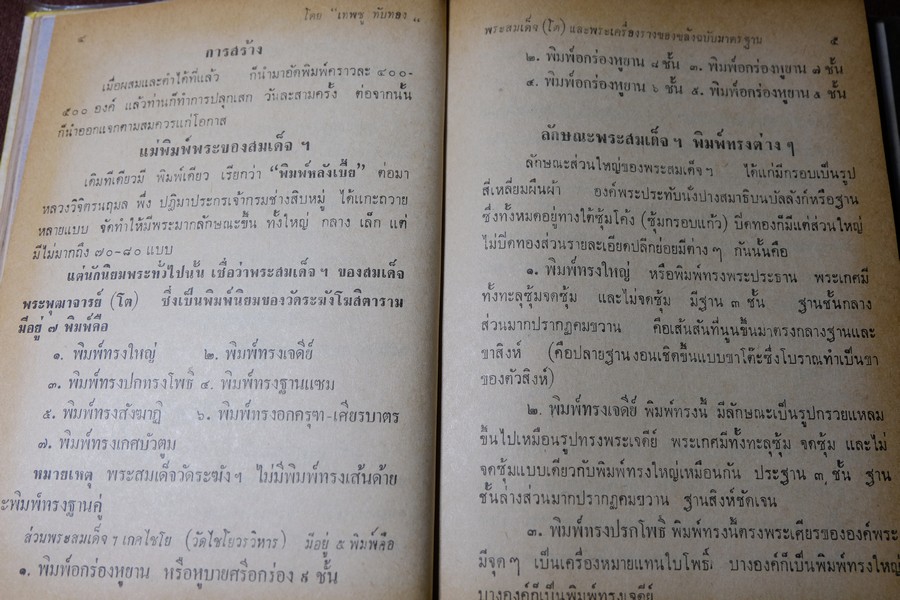 โดย "เทพชู ทับทอง"
๔
การสร้าง
เมื่อผสมและตำได้ที่แล้ว ก็นำมาอัดพิมพ์คราวละ ๔๐๐-
๕๐๐ องค์ แล้วท่านก็ทำการปลุกเสก วันละสามครั้ง ต่อจากนั้น
ก็นำออกแจกตามสมควรแก่โอกาส
แม่พิมพ์พระของสมเด็จ ฯ
เดิมทีเดียวมี พิมพ์เดียว เรียกว่า "พิมพ์หลังเบี้ย" ต่อมา
หลวงวิจิตรนฤมล พึ่ง ปฏิมาประกรเจ้ากรมช่างสิบหมู่ ได้แกะถวาย
หลายแบบ จัดทำให้มีพระมากลักษณะขึ้น ทั้งใหญ่ กลาง เล็ก แต่
มีไม่มากถึง ๗๐-๘๐ แบบ
แต่นักนิยมพระทั่วไปนั้น เชื่อว่าพระสมเด็จ ฯ ของสมเด็จ
พระพุฒาจารย์ (โต) ซึ่งเป็นพิมพ์นิยมของวัดระฆังโฆสิตาราม
มีอยู่ ๗ พิมพ์คือ
๑. พิมพ์ทรงใหญ่ ๒. พิมพ์ทรงเจดีย์
๓. พิมพ์ทรงปกทรงโพธิ์ ๔. พิมพ์ทรงฐานแซม
๕. พิมพ์ทรงสังฆาฏิ ๖. พิมพ์ทรงอกครุฑ-เศียรบาตร
๗. พิมพ์ทรงเกศบัวตูม
หมายเหตุ พระสมเด็จวัดระฆังฯ ไม่มีพิมพ์ทรงเส้นด้าย
ะพิมพ์ทรงฐานคู่
ส่วนพระสมเด็จ ฯ เกศไชโย (วัดไชโยวรวิหาร) มีอยู่ ๕ พิมพ์คือ
๑. พิมพ์อกร่องหูยาน หรือหูบายศรีอกร่อง ๙ ชั้น
พระสมเด็จ (โต) และพระเครื่องรางของขลังฉบับมาตรฐาน
๕
๒. พิมพ์อกร่องหูยาน ๘ ชั้น ๓. พิมพ์อกร่องหูยาน ๗ ชั้น
๔. พิมพ์อกร่องหูยาน ๖ ชั้น ๕. พิมพ์อกร่องหูยาน ๕ ชั้น
ลักษณะพระสมเด็จ ฯ พิมพ์ทรงต่าง ๆ
ลักษณะส่วนใหญ่ของพระสมเด็จฯ ได้แก่มีกรอบเป็นรูป
สี่เหลี่ยมผืนผ้า องค์พระประทับนั่งปางสมาธิบนบัลลังก์หรือฐาน
ซึ่งทั้งหมดอยู่ทางใต้ซุ้มโค้ง (ซุ้มกรอบแก้ว) ปิดทองก็มีแต่ส่วนใหญ่
ไม่ปิดทองส่วนรายละเอียดปลีกย่อยมีต่างๆ กันนั้นคือ
๑. พิมพ์ทรงใหญ่ หรือพิมพ์ทรงพระประธาน พระเกศมี
ทั้งทะลุซุ้มจดซุ้ม และไม่จดซุ้ม มีฐาน ๓ ชั้น ฐานชั้นกลาง
ส่วนมากปรากฏคมขวาน คือเส้นสันที่นูนขึ้นมาตรงกลางฐานและ
ขาสิงห์ (คือปลายฐานงอนเชิดขึ้นแบบขาโต๊ะซึ่งโบราณทำเป็นขา
ของตัวสิงห์)
๒. พิมพ์ทรงเจดีย์ พิมพ์ทรงนี้ มีลักษณะเป็นรูปกรวยแหลม
ขึ้นไปเหมือนรูปทรงพระเจดีย์ พระเกศมีทั้งทะลุซุ้ม จดซุ้ม และไม่
จดซุ้มแบบเดียวกับพิมพ์ทรงใหญ่เหมือนกัน ประฐาน ๓ ชั้น ฐาน
ชั้นล่างส่วนมากปรากฏคมขวาน ฐานสิงห์ชัดเจน
๓. พิมพ์ทรงปรกโพธิ์ พิมพ์ทรงนี้ตรงพระเศียรขององค์พระ
มีจุดๆ เป็นเครื่องหมายแทนใบโพธิ์ บางองค์ก็เป็นพิมพ์ทรงใหญ่
บางองค์ก็เป็นพิมพ์ทรงเจดีย์